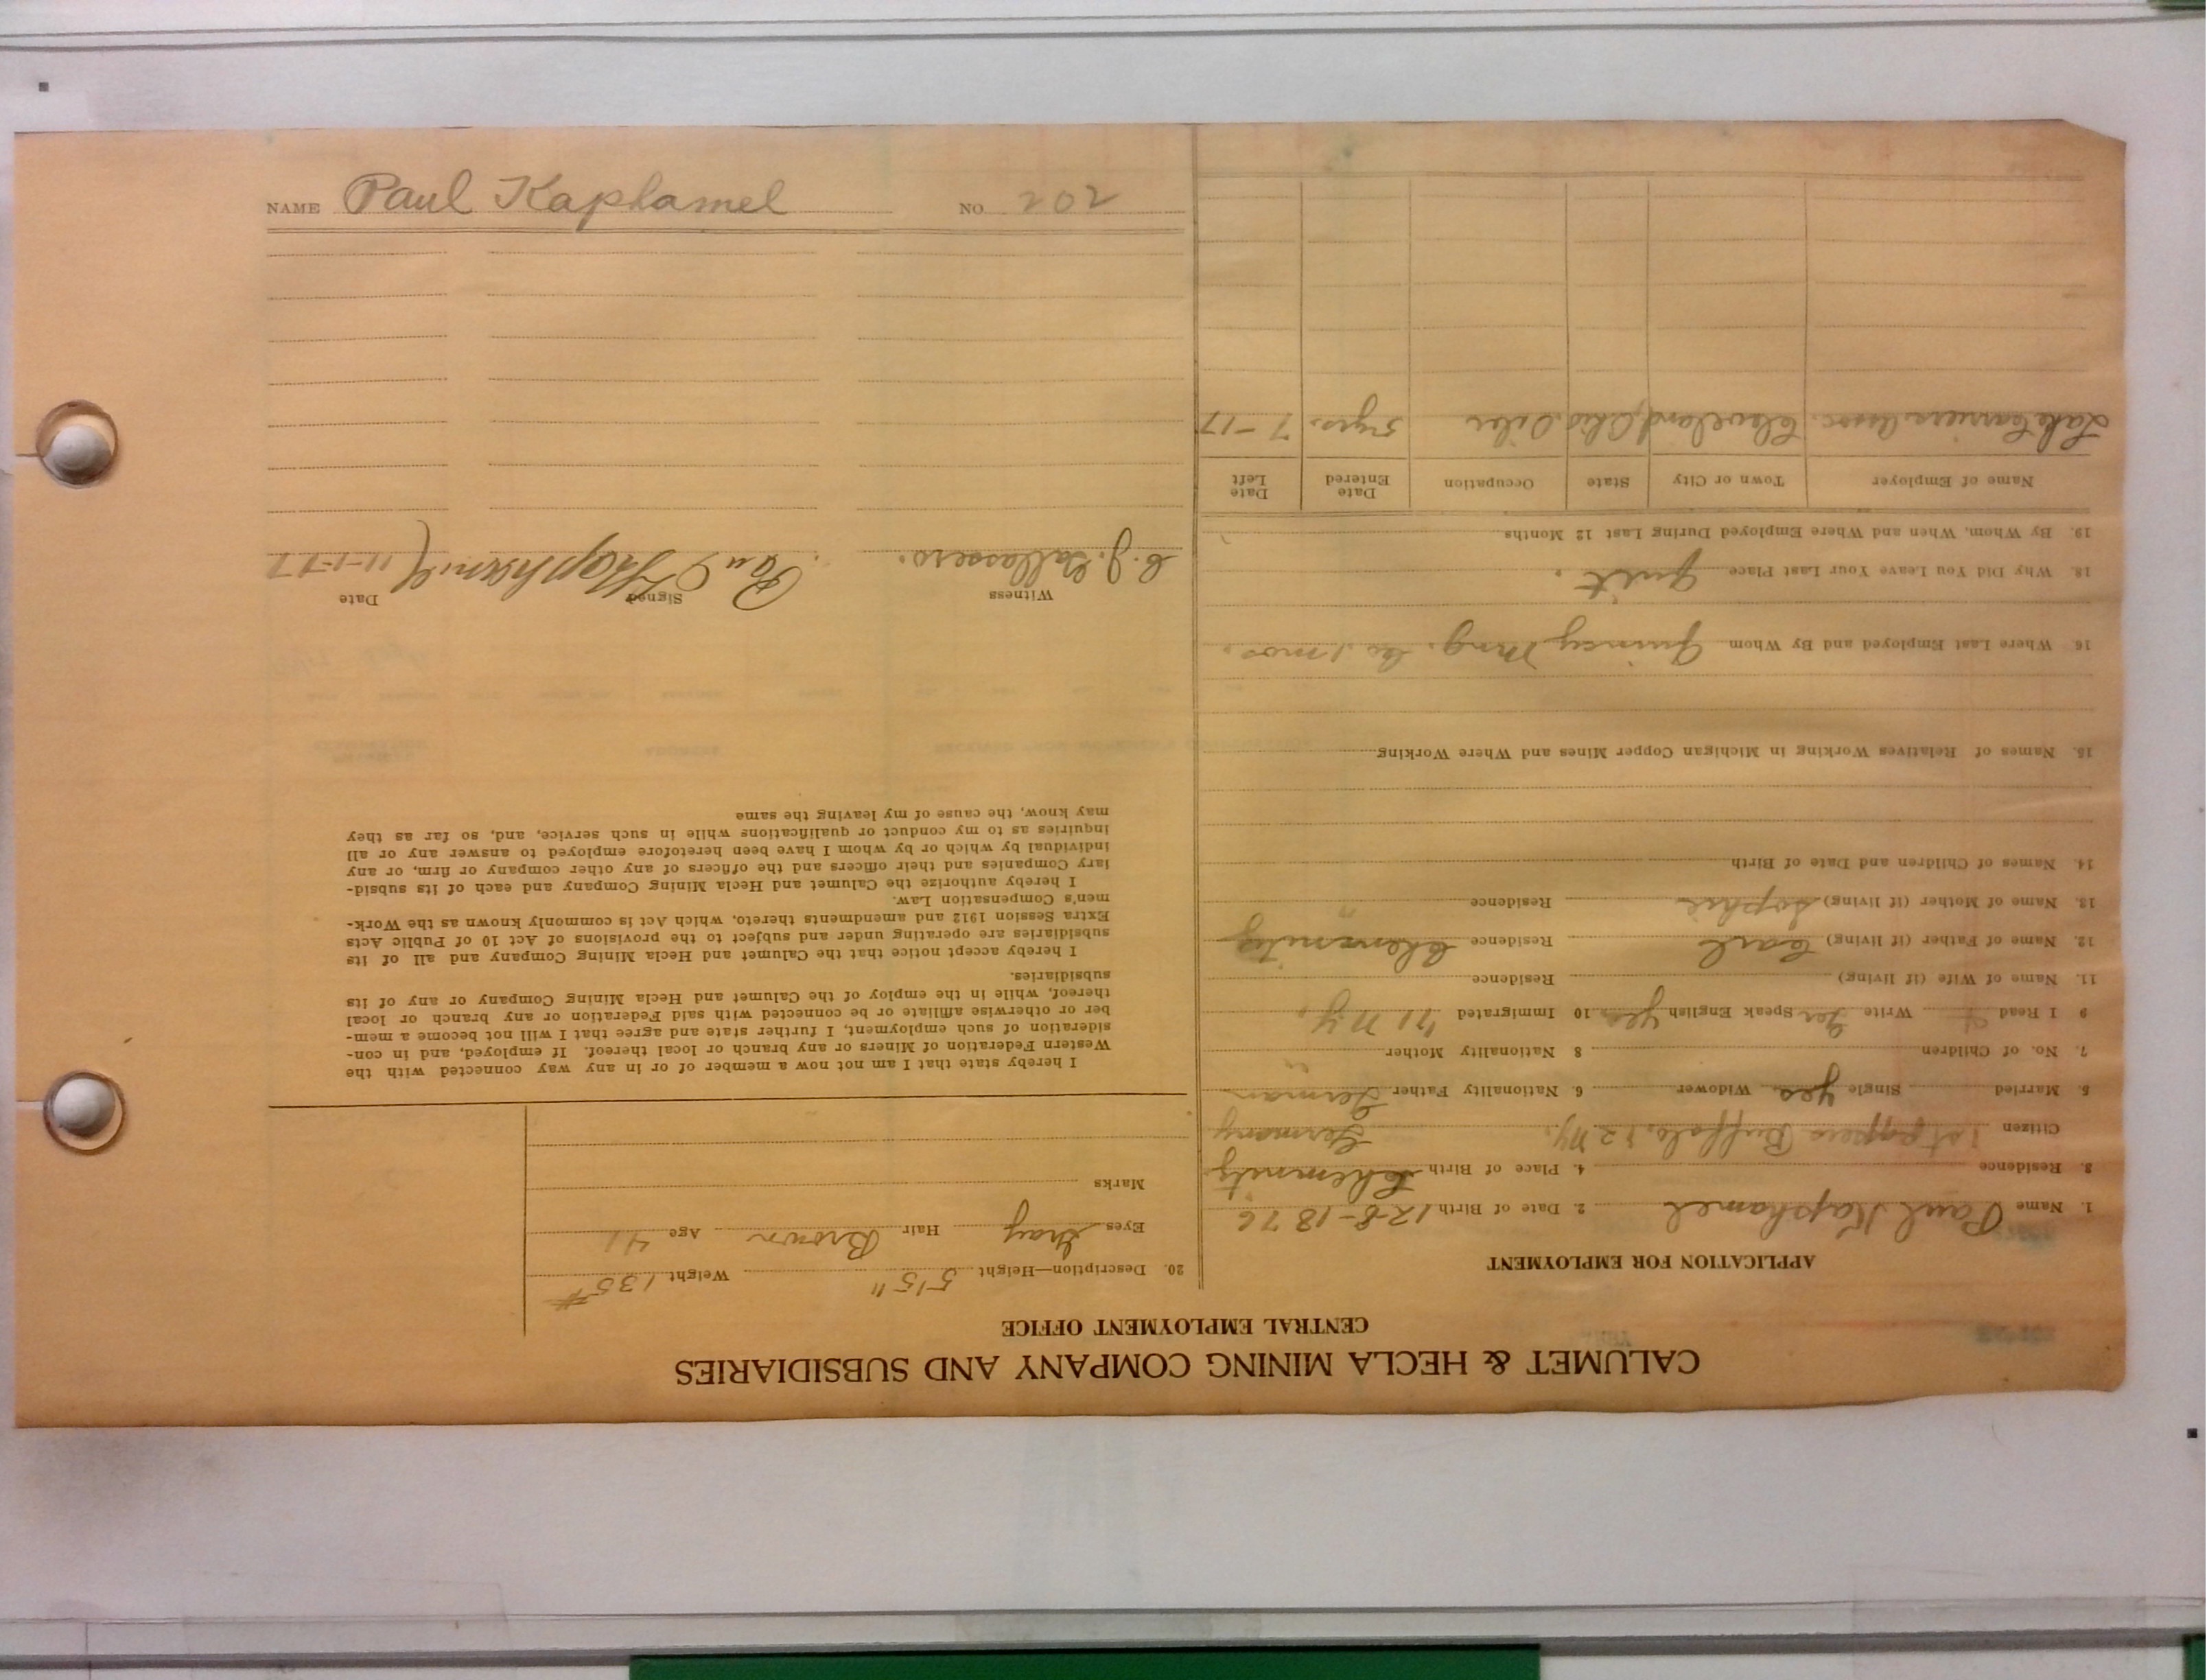 CALUMET & HECLA MINING COMPANY AND SUBSIDIARIES
CENTRAL EMPLOYMENT OFFICE
APPLICATION FOR EMPLOYMENT
1. Name Paul Kaphamel 2. Date of Birth 12-8-1876
3. Residence 4. Place of Birth Chemnitz
Citizen 1st papers Buffalo, N.Y. Germany
5. Married Single yes Widower 6. Nationality Father German
7. No. of Children 8 Nationality Mother "
9 I Read Write Ger Speak English yes 10 Immigrated '11 N.Y.
11. Name of Wife (if living) Residence
12. Name of Father (if living) Carl Residence Chemnitz
13. Name of Mother (if living) Sophie Residence "
14. Names of Children and Date of Birth
15. Names of Relatives Working in Michigan Copper Mines and Where Working
16. Where Last Employed and By Whom Quincy Mng. Co. 1 mos.
18. Why Did You Leave Your Last Place Quit.
19. By Whom, When and Where Employed During Last 12 Months
Name of Employer Town or City State Occupation Date Entered Date Left
Lake Carriers Assoc. Cleveland, Ohio. Oiler 5 yrs. 7-17
20. Description—Height 5'5" Weight 135#
Eyes Gray Hair Brown Age 41
Marks
I hereby state that I am not now a member of or in any way connected with the
Western Federation of Miners or any branch or local thereof. If employed, and in con-
sideration of such employment, I further state and agree that I will not become a mem-
ber or otherwise affiliate or be connected with said Federation or any branch or local
thereof, while in the employ of the Calumet and Hecla Mining Company or any of its
subsidiaries.
I hereby accept notice that the Calumet and Hecla Mining Company and all of its
subsidiaries are operating under and subject to the provisions of Act 10 of Public Acts
Extra Session 1912 and amendments thereto, which Act is commonly known as the Work-
men's Compensation Law.
I hereby authorize the Calumet and Hecla Mining Company and each of its subsid-
iary Companies and their officers and the officers of any other company or firm, or any
individual by which or by whom I have been heretofore employed to answer any or all
inquiries as to my conduct or qualifications while in such service, and, so far as they
may know, the cause of my leaving the same
Witness Signed Date
C. J. Gallassero. Paul Kaphamel 11-1-17
NAME Paul Kaphamel NO 202